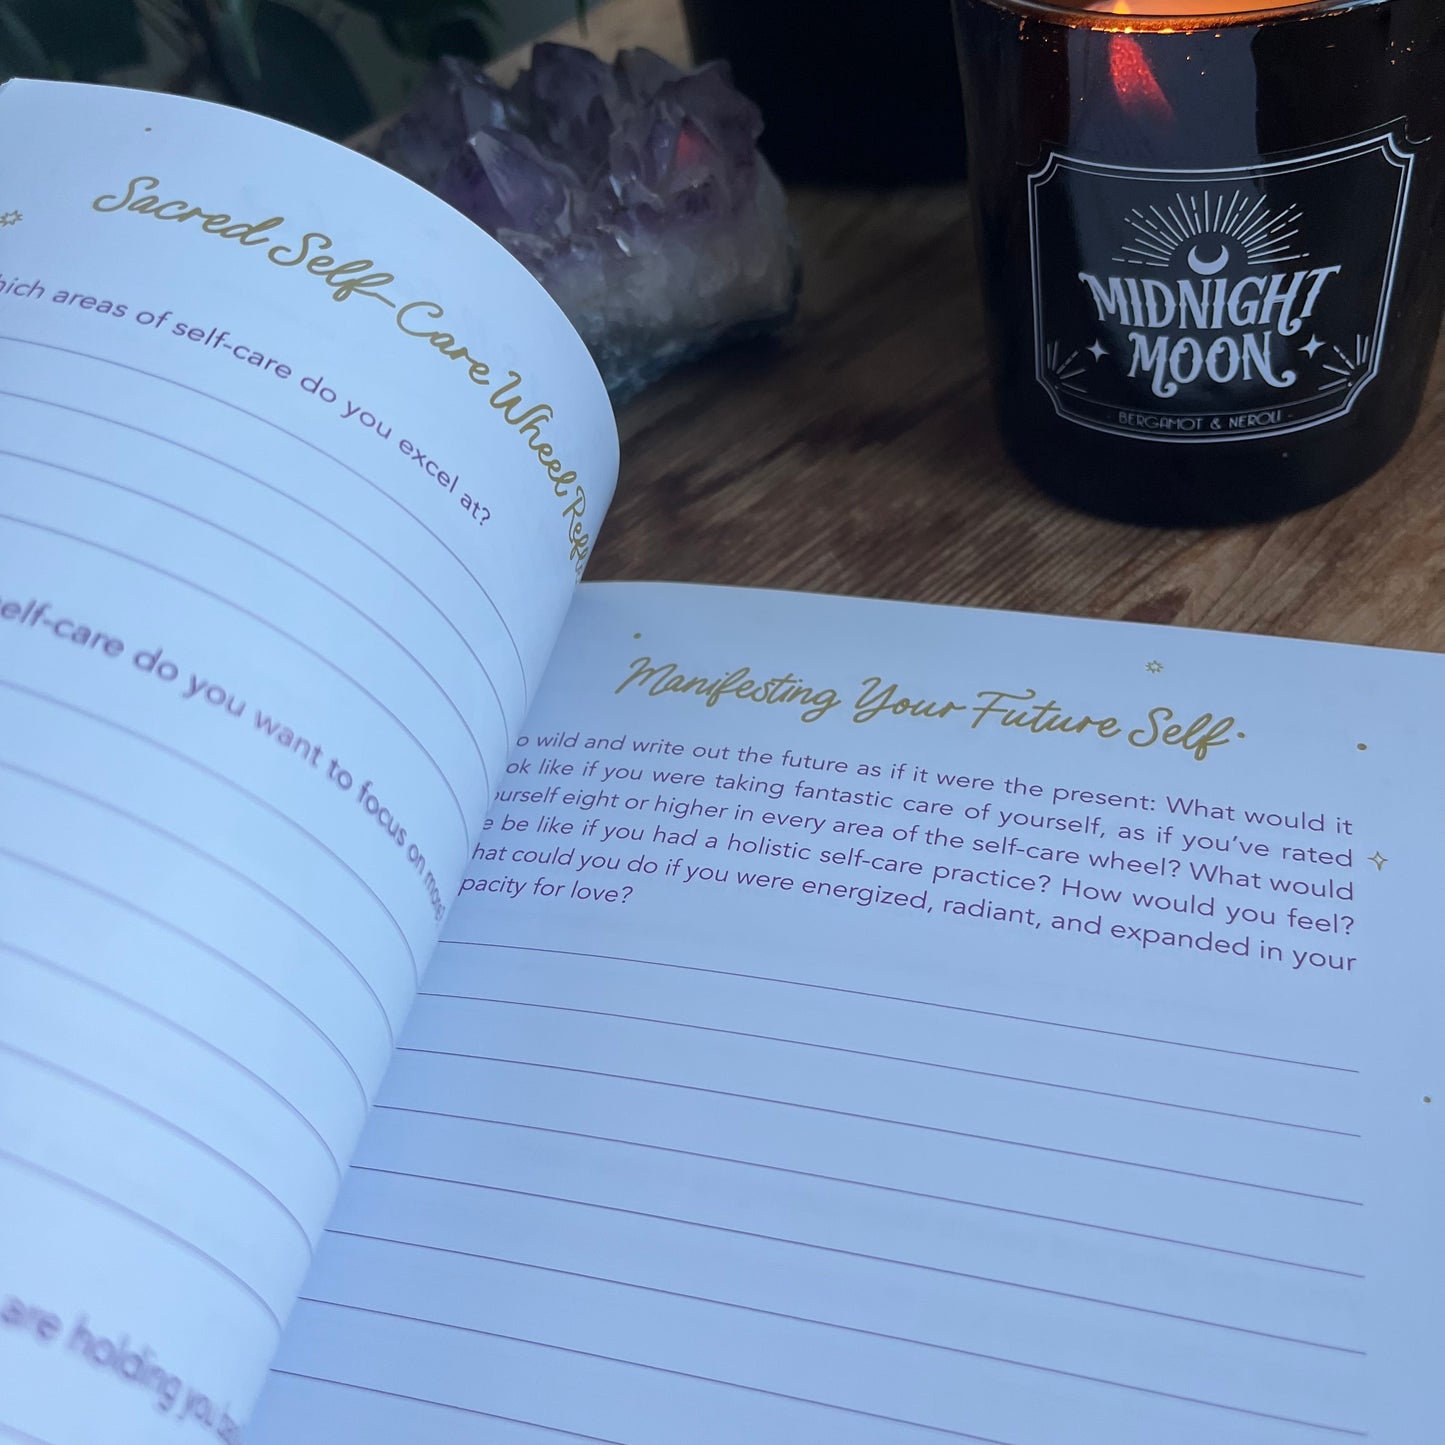 Sacred Self-Care Wheel
areas of self-care do you excel at?
self-care do you want to focus on more?
are holding you
Manifesting Your Future Self
wild and write out the future as if it were the present: What would it
like if you were taking fantastic care of yourself, as if you've rated
eight or higher in every area of the self-care wheel? What would
be like if you had a holistic self-care practice? How would you feel?
could you do if you were energized, radiant, and expanded in your
for love?
MIDNIGHT
MOON
BERGAMOT & NEROLI